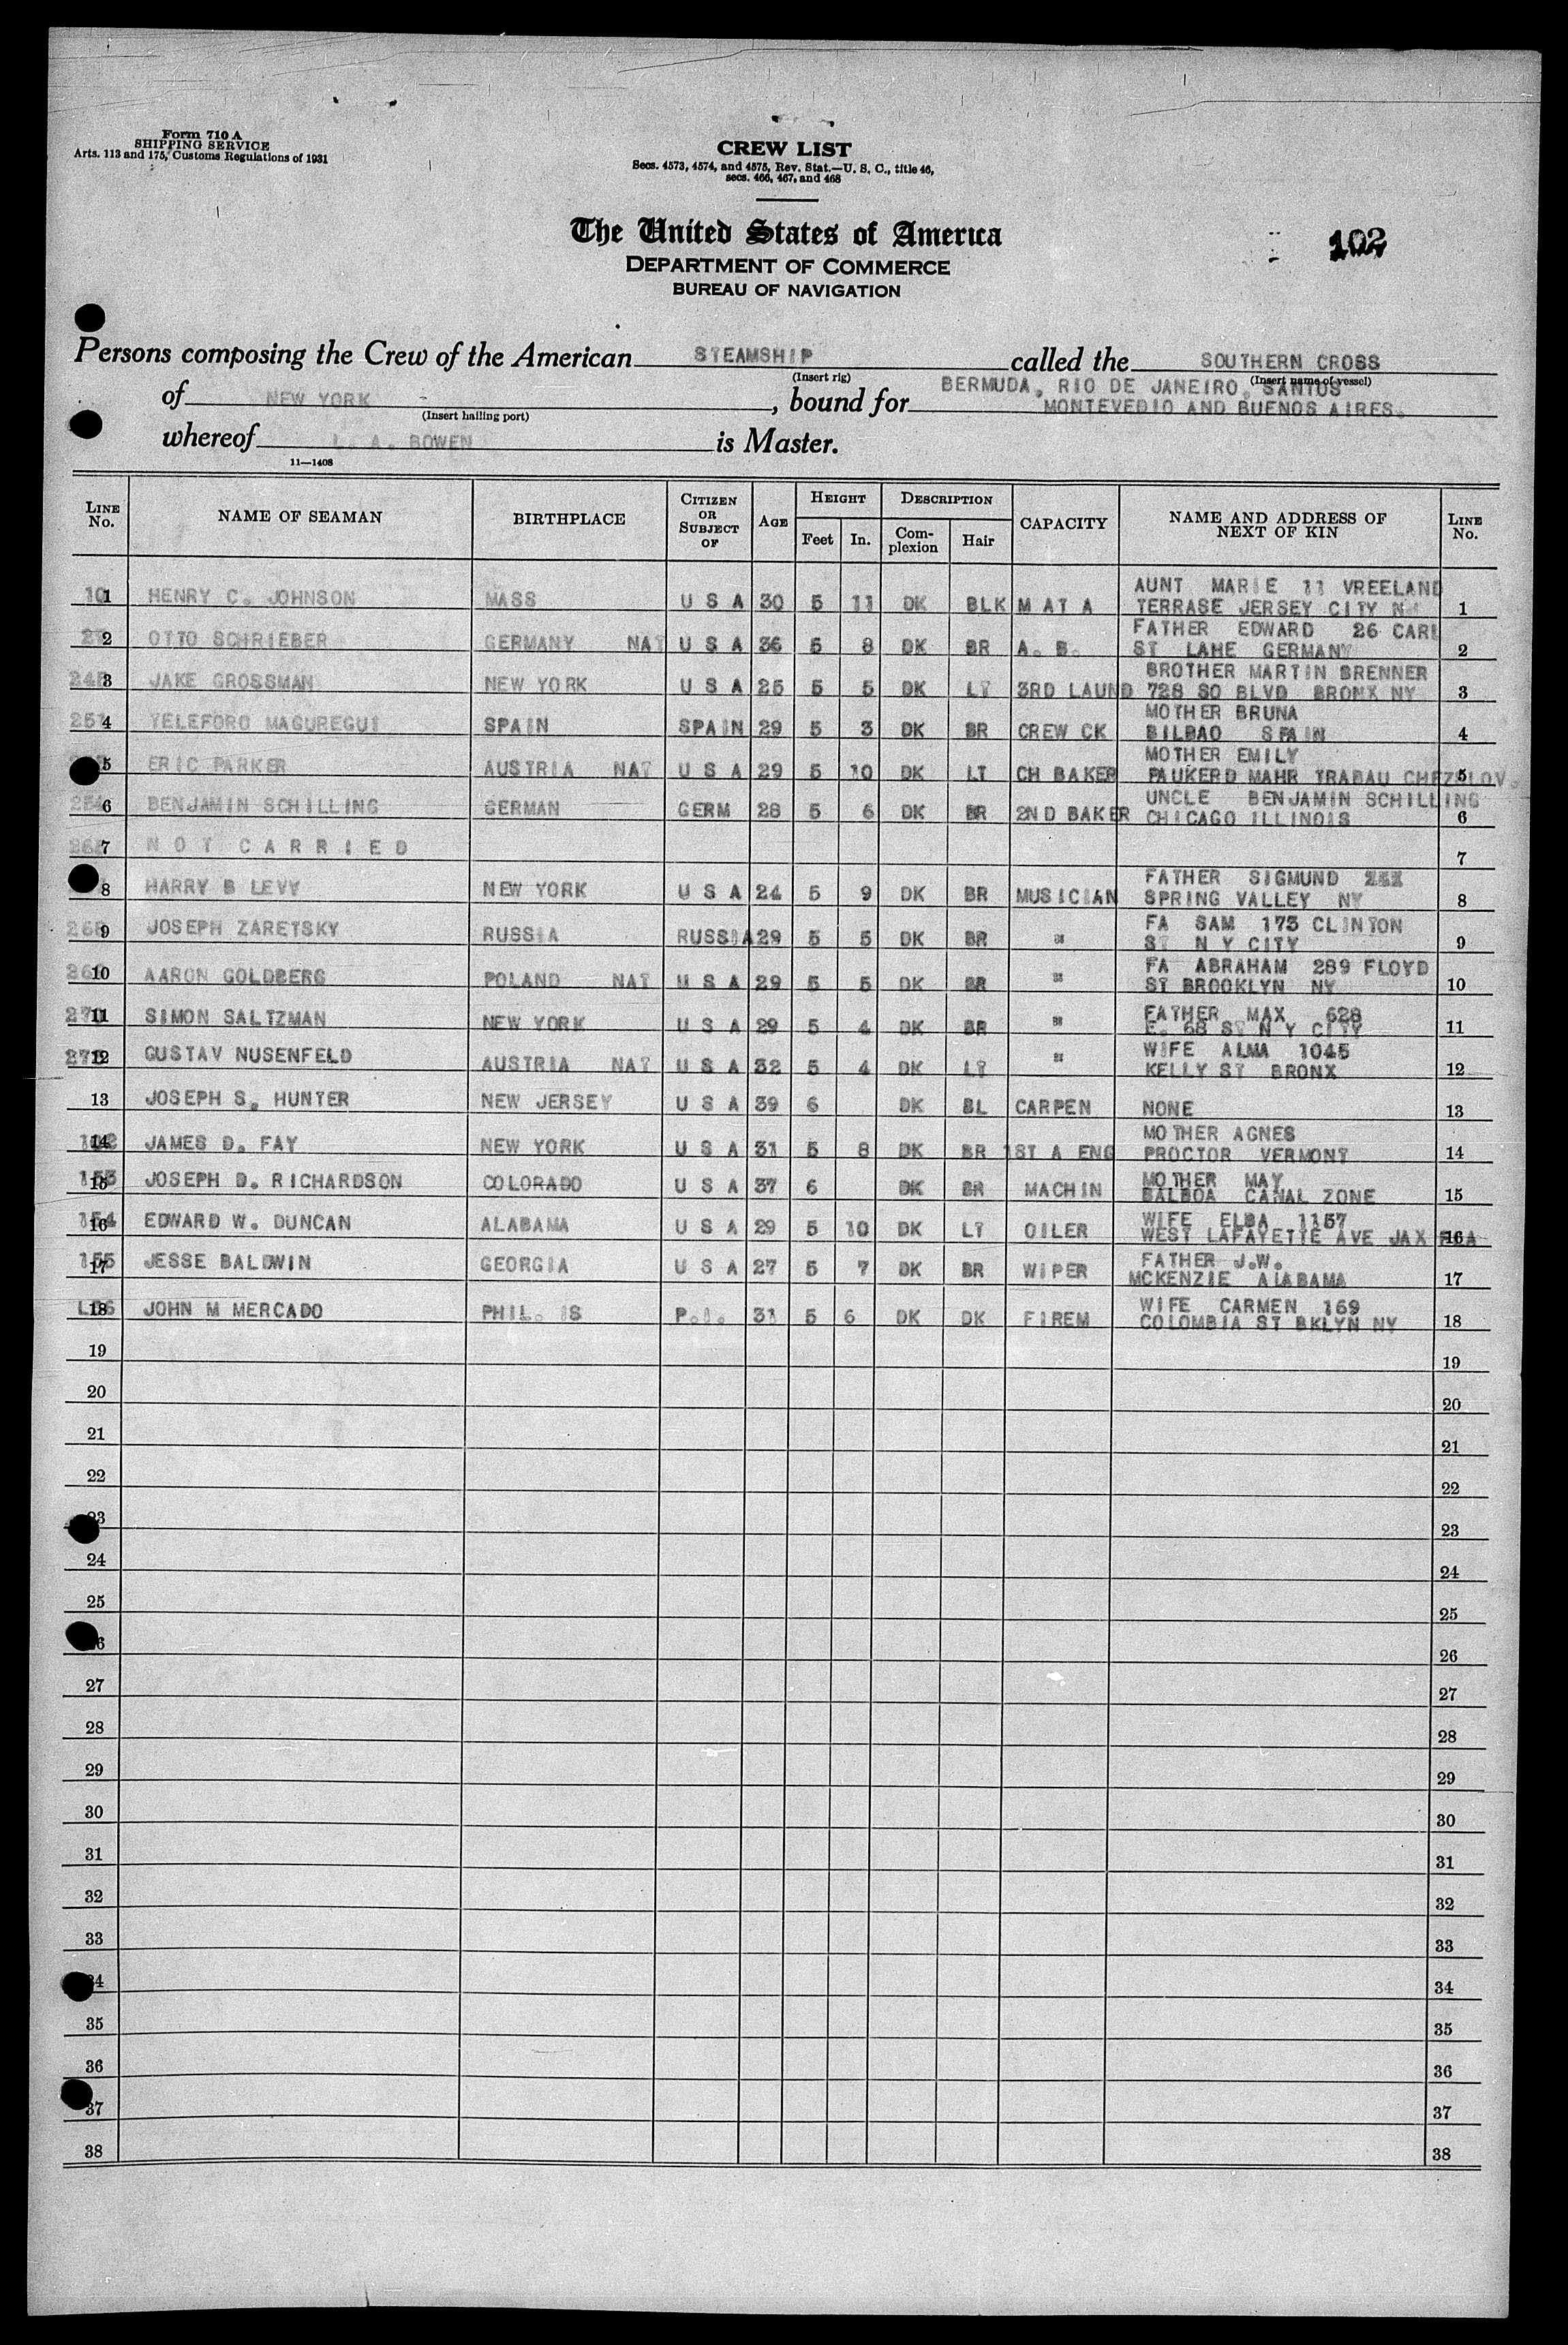 Form 710 A
SHIPPING SERVICE
Arts. 113 and 175, Customs Regulations of 1931
CREW LIST
Secs. 4573, 4574, and 4575, Rev. Stat.—U. S. C., title 46,
secs. 466, 467, and 468
The United States of America
DEPARTMENT OF COMMERCE
BUREAU OF NAVIGATION
102
Persons composing the Crew of the American STEAMSHIP called the SOUTHERN CROSS
(Insert rig) (Insert name of vessel)
of NEW YORK, bound for BERMUDA, RIO DE JANEIRO, SANTOS
(Insert hailing port) MONTEVEDIO AND BUENOS AIRES.
whereof L. A. BOWEN is Master.
11—1408
LINE No. NAME OF SEAMAN BIRTHPLACE CITIZEN OR SUBJECT OF AGE HEIGHT Feet In. DESCRIPTION Complexion Hair CAPACITY NAME AND ADDRESS OF NEXT OF KIN LINE No.
AUNT MARIE 11 VREELAND
1 HENRY C. JOHNSON MASS U S A 30 5 11 DK BLK M AT A TERRASE JERSEY CITY 1
FATHER EDWARD 26 CARL
2 OTTO SCHRIEBER GERMANY NAT U S A 36 5 8 DK BR A. B. ST LAHE GERMANY 2
BROTHER MARTIN BRENNER
3 JAKE GROSSMAN NEW YORK U S A 25 5 5 DK LT 3RD LAUND 728 SO BLVD BRONX NY 3
MOTHER BRUNA
4 TELEFORO MAGUREGUI SPAIN SPAIN 29 5 3 DK BR CREW CK BILBAO SPAIN 4
MOTHER EMILY
5 ERIC PARKER AUSTRIA NAT U S A 29 5 10 DK LT CH BAKER PAUKERD MAHR TRABAU CHEZSLOV. 5
UNCLE BENJAMIN SCHILLING
6 BENJAMIN SCHILLING GERMAN GERM 28 5 6 DK BR 2ND BAKER CHICAGO ILLINOIS 6
7 N O T C A R R I E D 7
FATHER SIGMUND
8 HARRY B LEVY NEW YORK U S A 24 5 9 DK BR MUSICIAN SPRING VALLEY NY 8
FA SAM 173 CLINTON
9 JOSEPH ZARETSKY RUSSIA RUSSIA 29 5 5 DK BR " ST N Y CITY 9
FA ABRAHAM 289 FLOYD
10 AARON GOLDBERG POLAND NAT U S A 29 5 5 DK BR " ST BROOKLYN NY 10
FATHER MAX 628
11 SIMON SALTZMAN NEW YORK U S A 29 5 4 DK BR " E. 68 ST N Y CITY 11
WIFE ALMA 1045
12 GUSTAV NUSENFELD AUSTRIA NAT U S A 32 5 4 DK LT " KELLY ST BRONX 12
13 JOSEPH S. HUNTER NEW JERSEY U S A 39 6 DK BL CARPEN NONE 13
MOTHER AGNES
14 JAMES D. FAY NEW YORK U S A 31 5 8 DK BR 1ST A ENG PROCTOR VERMONT 14
MOTHER MAY
153 15 JOSEPH D. RICHARDSON COLORADO U S A 37 6 DK BR MACHIN BALBOA CANAL ZONE 15
WIFE ELBA 1157
154 16 EDWARD W. DUNCAN ALABAMA U S A 29 5 10 DK LT OILER WEST LAFAYETTE AVE JAX FLA 16
FATHER J.W.
155 17 JESSE BALDWIN GEORGIA U S A 27 5 7 DK BR WIPER MCKENZIE ALABAMA 17
WIFE CARMEN 169
18 JOHN M MERCADO PHIL. IS P.I. 31 5 6 DK DK FIREM COLOMBIA ST BKLYN NY 18
19 19
20 20
21 21
22 22
23 23
24 24
25 25
26 26
27 27
28 28
29 29
30 30
31 31
32 32
33 33
34 34
35 35
36 36
37 37
38 38